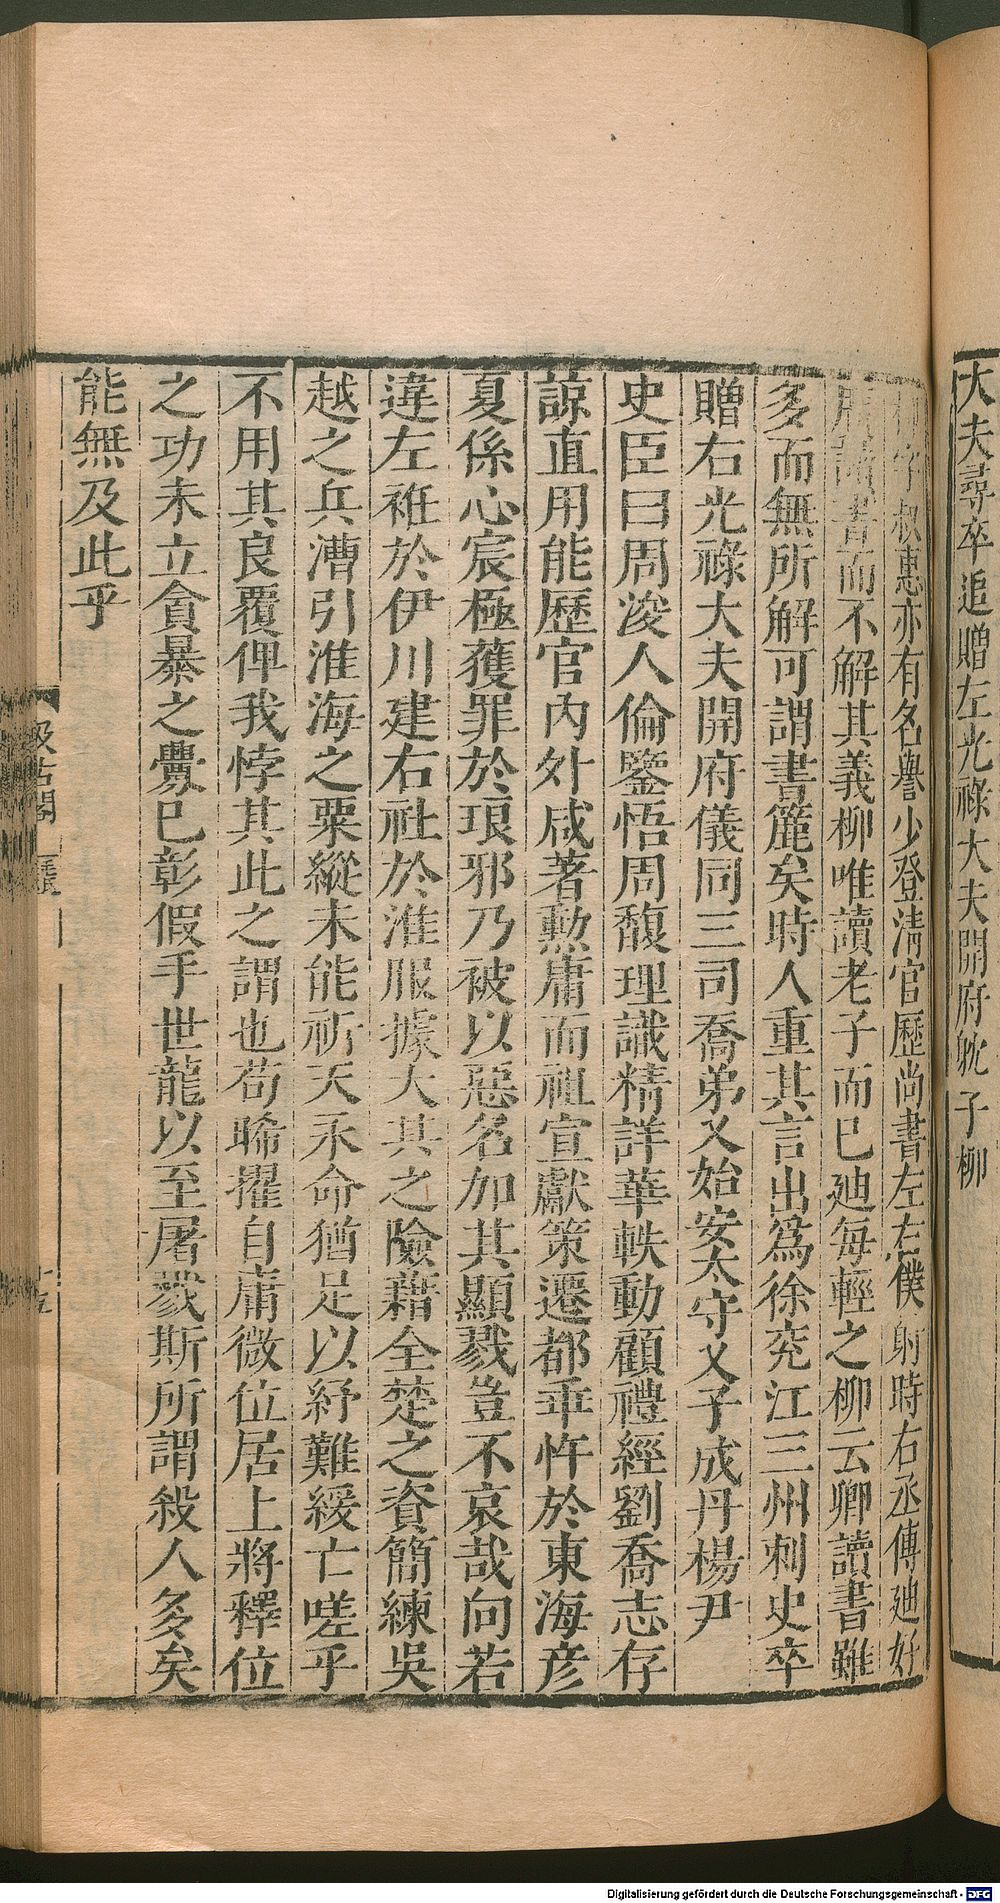 大夫尋卒追贈左光祿大夫開府躭子柳
柳字叔惠亦有名譽少登淸官歷尚書左右僕射時右丞傅廸好
廣讀書而不解其義柳唯讀老子而已廸每輕之柳云卿讀書雖
多而無所解可謂書簏矣時人重其言出爲徐兖江三州刺史卒
贈右光祿大夫開府儀同三司喬弟乂始安太守乂子成丹楊尹
史臣曰周浚人倫鑒悟周馥理識精詳華軼動顧禮經劉喬志存
諒直用能歷官內外咸著勲庸而祖宣獻策遷都乖忤於東海彦
夏係心宸極獲罪於琅邪乃被以惡名加其顯戮豈不哀哉向若
違左袵於伊川建右社於淮服據大其之險藉全楚之資簡練吳
越之兵漕引淮海之粟縱未能祈天永命猶足以紓難緩亡嗟乎
不用其良覆俾我悖其此之謂也苟晞擢自庸微位居上將釋位
之功未立貪暴之釁已彰假手世龍以至屠戮斯所謂殺人多矣
能無及此乎
汲古閣
十五
Digitalisierung gefördert durch die Deutsche Forschungsgemeinschaft - DFG